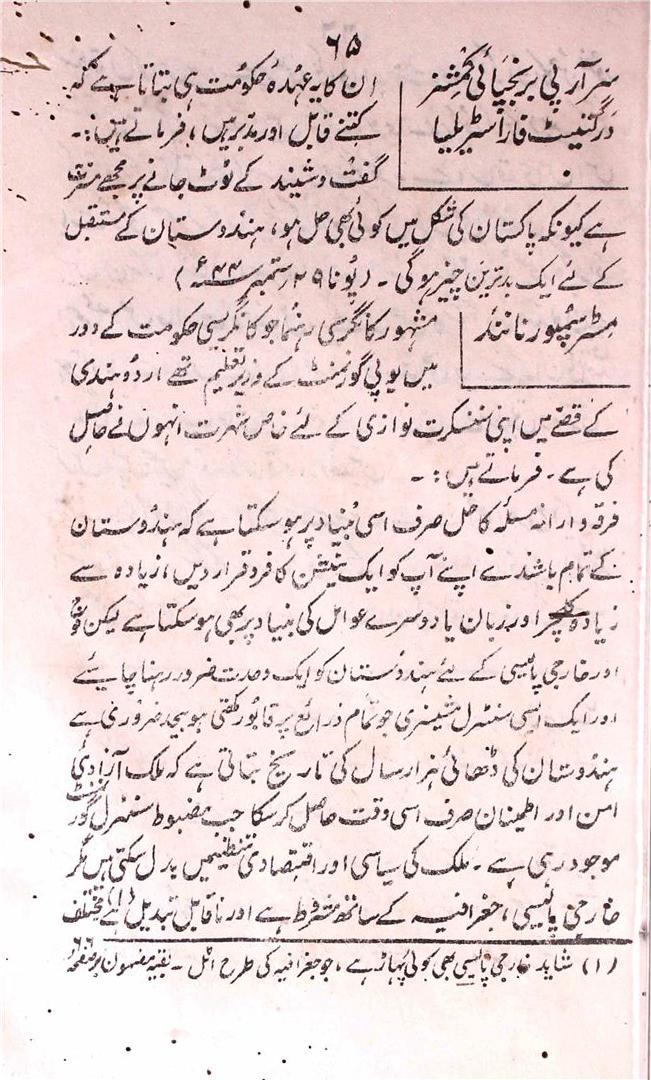 ۶۵
سر آر پی برنجپائی کمشنر
درگنیسٹ فار آسٹریلیا
ان کا یہ عہدہ حکومت ہی بتاتا ہے کہ
کتنے قابل اور مدبر ہیں، فرماتے ہیں:۔
گفت و شنید کے ٹوٹ جانے پر مجھے مسرت
ہے کیونکہ پاکستان کی شکل میں کوئی بھی حل ہو، ہندوستان کے مستقبل
کے لئے ایک بدترین چیز ہوگی۔ (پونا ۲۹ ستمبر ۴۴ء)
مسٹر سمپورنانند
مشہور کانگرسی رہنما جو کانگریسی حکومت کے دور
میں یوپی گورنمنٹ کے وزیر تعلیم تھے اردو ہندی
کے قصے میں اپنی سنسکرت نوازی کے لئے خاص شہرت انہوں نے حاصل
کی ہے۔ فرماتے ہیں:۔
فرقہ وارانہ مسئلہ کا حل صرف اسی بنیاد پر ہو سکتا ہے کہ ہندوستان
کے تمام باشندے اپنے آپ کو ایک نیشن کا فرد قرار دیں، زیادہ سے
زیادہ کلچر اور زبان یا دوسرے عوامل کی بنیاد پر بھی ہو سکتا ہے لیکن
اور خارجی پالیسی کے لئے ہندوستان کو ایک وحدت ضرور رہنا چاہیئے
اور ایک ایسی سنٹرل مشینری جو تمام ذرائع پر قابو رکھتی ہو بیحد ضروری ہے
ہندوستان کی ڈھائی ہزار سال کی تاریخ بتاتی ہے کہ ملک آزادی
امن اور اطمینان صرف اسی وقت حاصل کر سکا جب مضبوط سنٹرل گورنمنٹ
موجود رہی ہے۔ ملک کی سیاسی اور اقتصادی تنظیمیں بدل سکتی ہیں مگر
خارجی پالیسی، جغرافیہ کے ساتھ مشروط ہے اور ناقابل تبدیل (۱) ہے مختلف
(۱) شاید خارجی پالیسی بھی کوئی پہاڑ ہے، جو جغرافیہ کی طرح اٹل۔ بقیہ مضمون بر صفحہ ۶۶